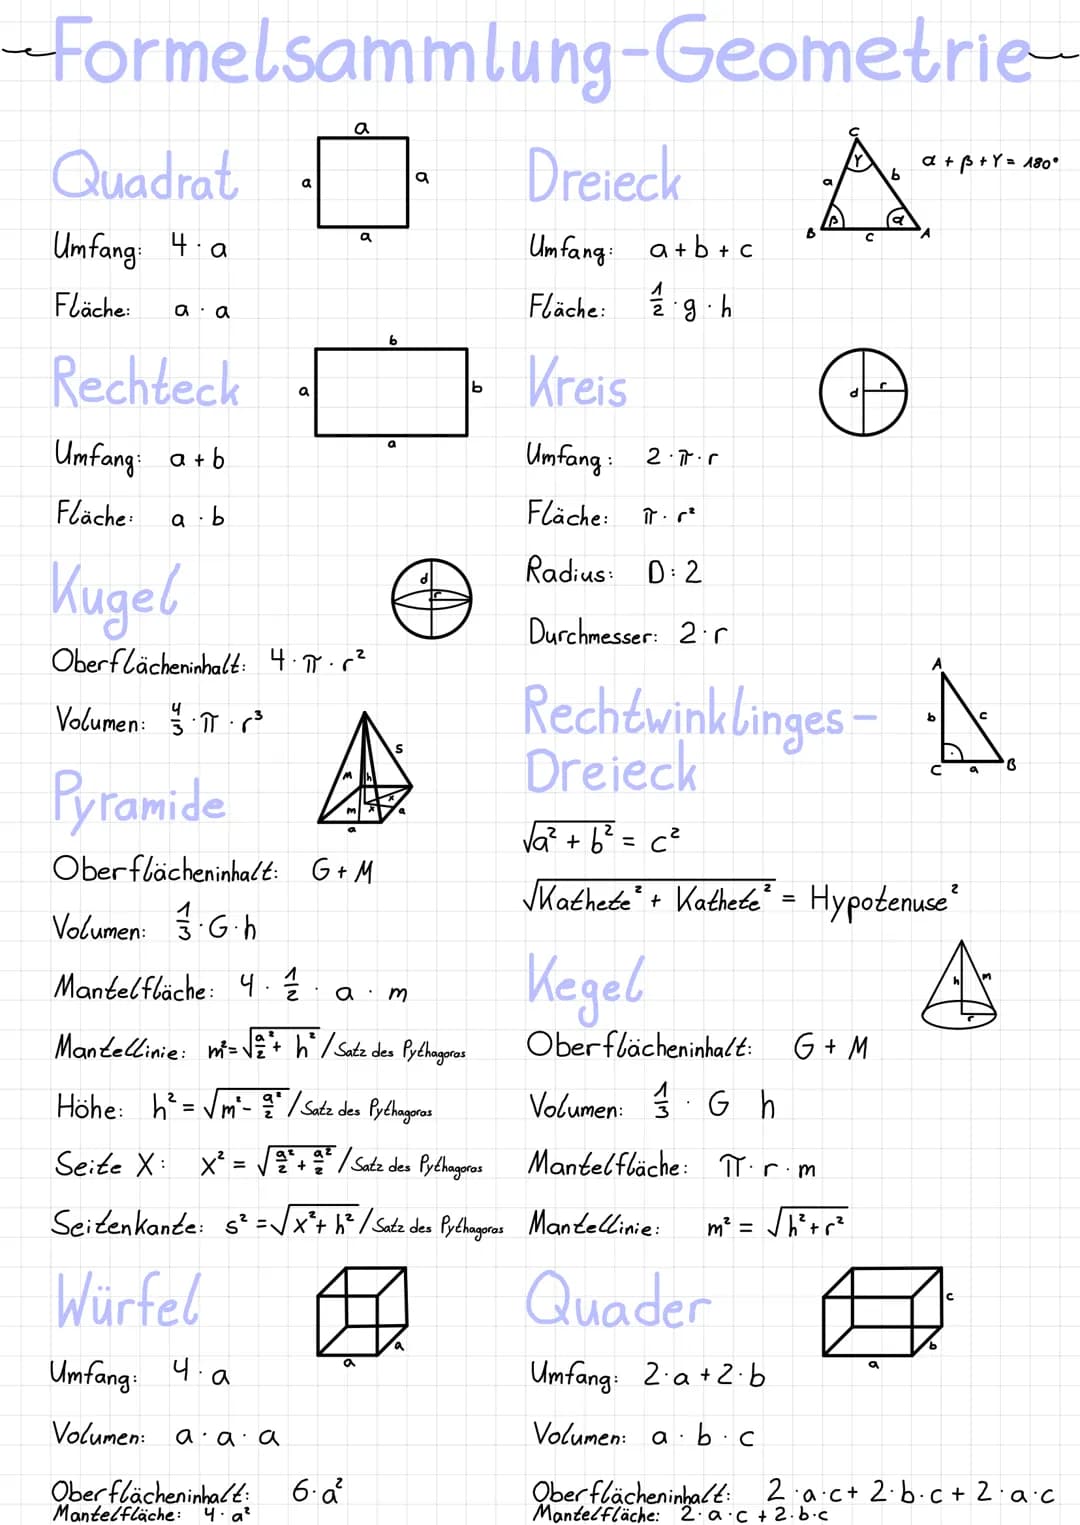 Formelsammlung-Geometrie
Quadrat
a
a
a
a
Umfang: 4 · a
Fläche: a · a
Rechteck
b
a
b
a
Umfang: a + b
Fläche: a · b
Kugel
d
r
Oberflächeninhalt: 4 · π · r²
Volumen: 4/3 · π · r³
Pyramide
s
M
h
m
x
x
a
a
Oberflächeninhalt: G + M
Volumen: 1/3 · G · h
Mantelfläche: 4 · 1/2 · a · m
Mantellinie: m² = √a²/2 + h² / Satz des Pythagoras
Höhe: h² = √m² - a²/2 / Satz des Pythagoras
Seite X: x² = √a²/2 + a²/2 / Satz des Pythagoras
Seitenkante: s² = √x² + h² / Satz des Pythagoras
Würfel
a
a
Umfang: 4 · a
Volumen: a · a · a
Oberflächeninhalt: 6 · a²
Mantelfläche: 4 · a²
Dreieck
C
γ
a
b
β
α
B
c
A
α + β + γ = 180°
Umfang: a + b + c
Fläche: 1/2 · g · h
Kreis
d
r
Umfang: 2 · π · r
Fläche: π · r²
Radius: D : 2
Durchmesser: 2 · r
Rechtwinklinges-
Dreieck
A
b
c
C
a
B
√a² + b² = c²
√Kathete² + Kathete² = Hypotenuse²
Kegel
h
m
r
Oberflächeninhalt: G + M
Volumen: 1/3 · G h
Mantelfläche: π · r · m
Mantellinie: m² = √h² + r²
Quader
c
b
a
Umfang: 2 · a + 2 · b
Volumen: a · b · c
Oberflächeninhalt: 2 · a · c + 2 · b · c + 2 · a · c
Mantelfläche: 2 · a · c + 2 · b · c